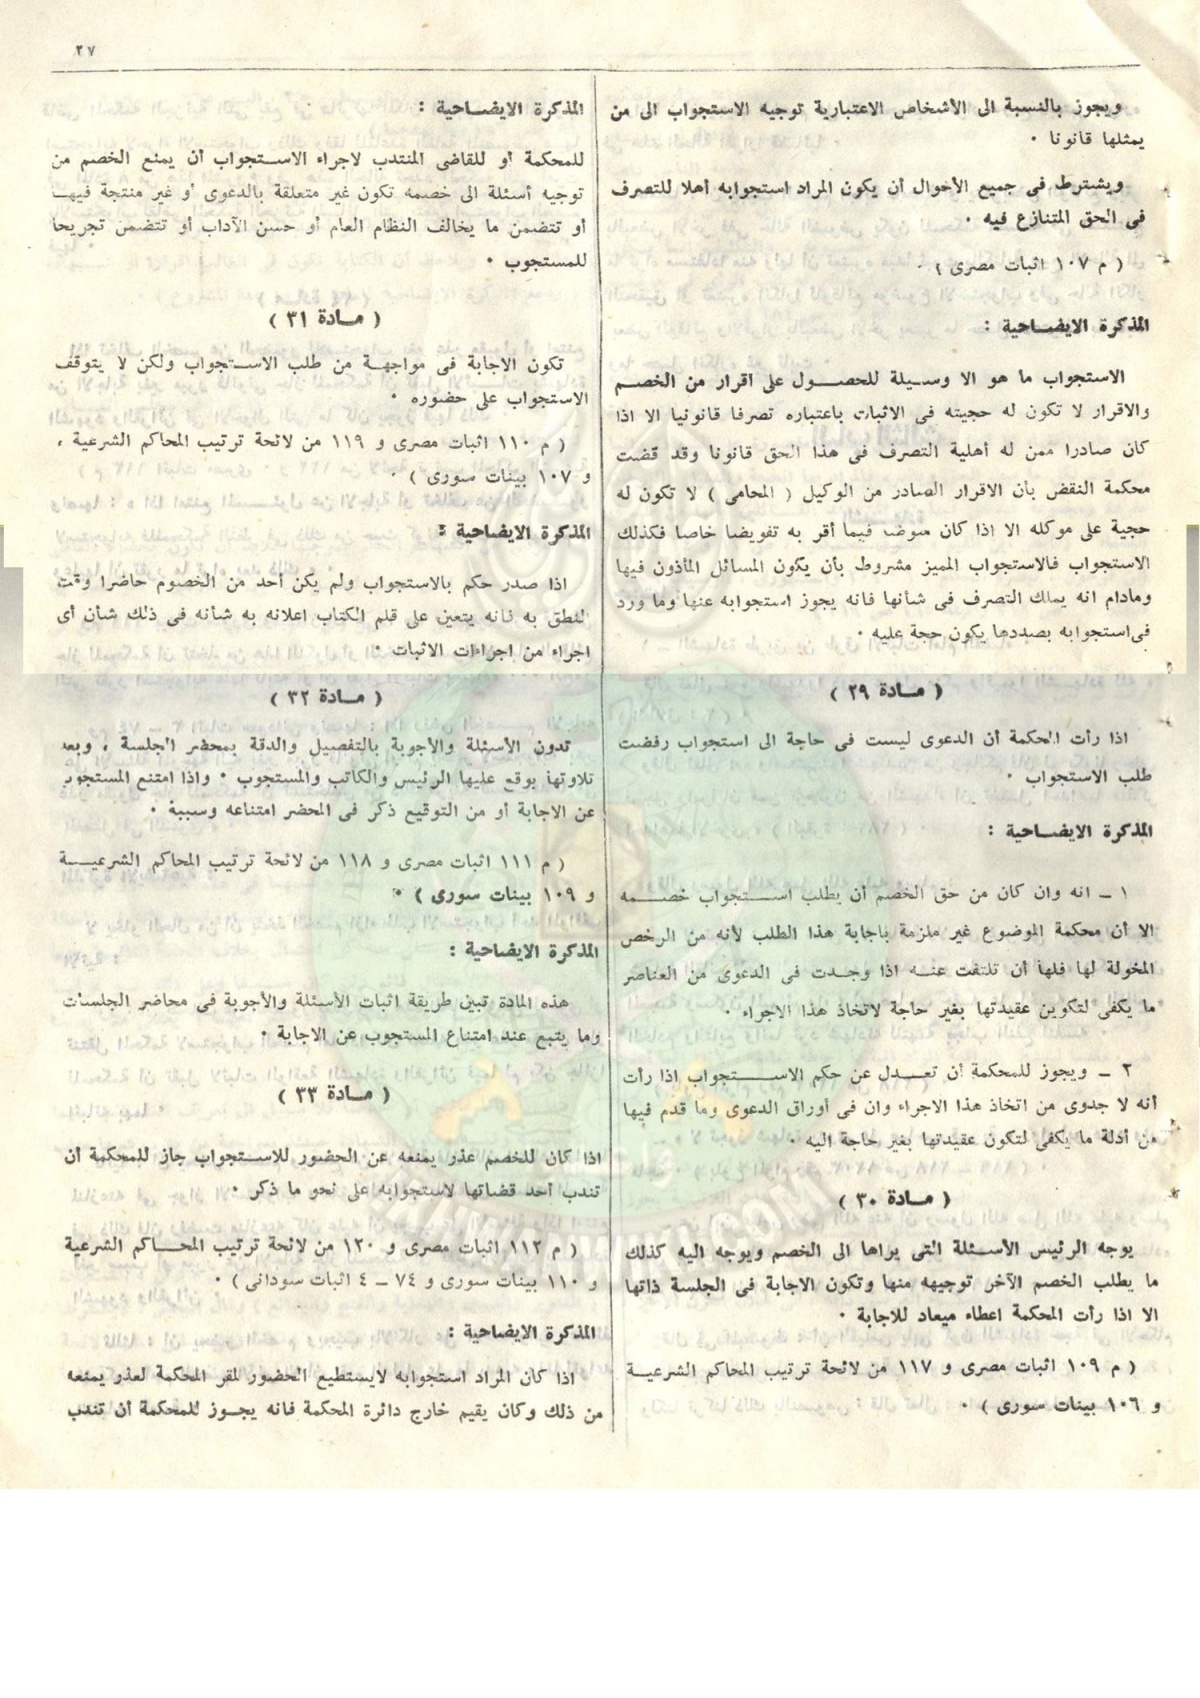 ٢٧
ويجوز بالنسبة الى الأشخاص الاعتبارية توجيه الاستجواب الى من
يمثلها قانونا ٠
ويشترط فى جميع الأحوال أن يكون المراد استجوابه أهلا للتصرف
فى الحق المتنازع فيه ٠
( م ١٠٧ اثبات مصرى ) ٠
المذكرة الايضاحية :
الاستجواب ما هو الا وسيلة للحصول على اقرار من الخصم
والاقرار لا تكون له حجيته فى الاثبات باعتباره تصرفا قانونيا الا اذا
كان صادرا ممن له أهلية التصرف فى هذا الحق قانونا وقد قضت
محكمة النقض بأن الاقرار الصادر من الوكيل ( المحامى ) لا تكون له
حجية على موكله الا اذا كان مفوضا فيما أقر به تفويضا خاصا فكذلك
الاستجواب فالاستجواب المميز مشروط بأن يكون المسائل المأذون فيها
ومادام انه يملك التصرف فى شأنها فانه يجوز استجوابه عنها وما ورد
فى استجوابه بصددها يكون حجة عليه ٠
( مادة ٢٩ )
اذا رأت المحكمة أن الدعوى ليست فى حاجة الى استجواب رفضت
طلب الاستجواب ٠
المذكرة الايضاحية :
١ - انه وان كان من حق الخصم أن يطلب استجواب خصمه
الا أن محكمة الموضوع غير ملزمة باجابة هذا الطلب لأنه من الرخص
المخولة لها فلها أن تلتفت عنه اذا وجدت فى الدعوى من العناصر
ما يكفى لتكوين عقيدتها بغير حاجة لاتخاذ هذا الاجراء ٠
٢ - ويجوز للمحكمة أن تعدل عن حكم الاستجواب اذا رأت
أنه لا جدوى من اتخاذ هذا الاجراء وان فى أوراق الدعوى وما قدم فيها
من أدلة ما يكفى لتكون عقيدتها بغير حاجة اليه ٠
( مادة ٣٠ )
يوجه الرئيس الأسئلة التى يراها الى الخصم ويوجه اليه كذلك
ما يطلب الخصم الآخر توجيهه منها وتكون الاجابة فى الجلسة ذاتها
الا اذا رأت المحكمة اعطاء ميعاد للاجابة ٠
( م ١٠٩ اثبات مصرى و ١١٧ من لائحة ترتيب المحاكم الشرعية
و ١٠٦ بينات سورى ) ٠
المذكرة الايضاحية :
للمحكمة أو للقاضى المنتدب لاجراء الاستجواب أن يمنع الخصم من
توجيه أسئلة الى خصمه تكون غير متعلقة بالدعوى أو غير منتجة فيها
أو تتضمن ما يخالف النظام العام أو حسن الآداب أو تتضمن تجريحا
للمستجوب ٠
( مادة ٣١ )
تكون الاجابة فى مواجهة من طلب الاستجواب ولكن لا يتوقف
الاستجواب على حضوره ٠
( م ١١٠ اثبات مصرى و ١١٩ من لائحة ترتيب المحاكم الشرعية ،
و ١٠٧ بينات سورى ) ٠
المذكرة الايضاحية :
اذا صدر حكم بالاستجواب ولم يكن أحد من الخصوم حاضرا وقت
النطق به فانه يتعين على قلم الكتاب اعلانه به شأنه فى ذلك شأن أى
اجراء من اجراءات الاثبات ٠
( مادة ٣٢ )
تدون الأسئلة والأجوبة بالتفصيل والدقة بمحضر الجلسة ، وبعد
تلاوتها يوقع عليها الرئيس والكاتب والمستجوب ٠ واذا امتنع المستجوب
عن الاجابة أو من التوقيع ذكر فى المحضر امتناعه وسببه ٠
( م ١١١ اثبات مصرى و ١١٨ من لائحة ترتيب المحاكم الشرعية
و ١٠٩ بينات سورى ) ٠
المذكرة الايضاحية :
هذه المادة تبين طريقة اثبات الأسئلة والأجوبة فى محاضر الجلسات
وما يتبع عند امتناع المستجوب عن الاجابة ٠
( مادة ٣٣ )
اذا كان للخصم عذر يمنعه عن الحضور للاستجواب جاز للمحكمة أن
تندب أحد قضاتها لاستجوابه على نحو ما ذكر ٠
( م ١١٢ اثبات مصرى و ١٢٠ من لائحة ترتيب المحاكم الشرعية
و ١١٠ بينات سورى و ٧٤ - ٤ اثبات سودانى ) ٠
المذكرة الايضاحية :
اذا كان المراد استجوابه لايستطيع الحضور لمقر المحكمة لعذر يمنعه
من ذلك وكان يقيم خارج دائرة المحكمة فانه يجوز للمحكمة أن تندب